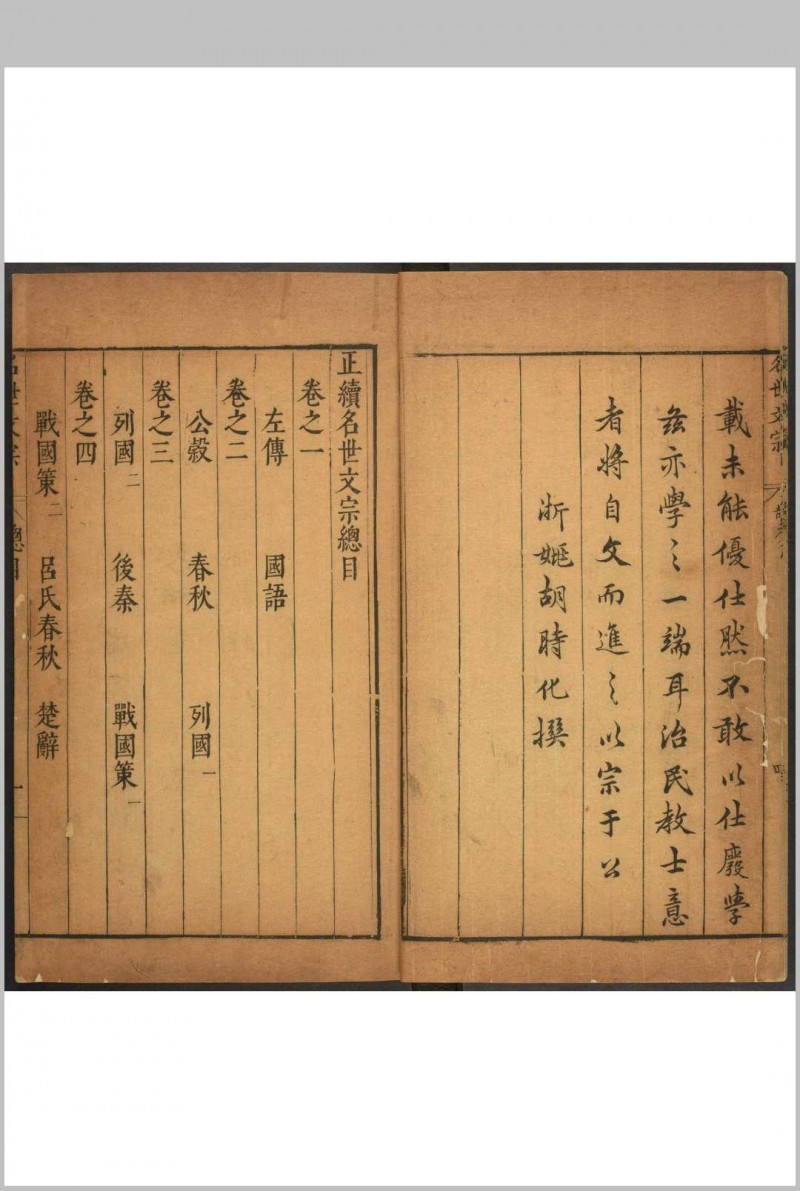 載未能優仕然不敢以仕廢學
茲亦學之一端耳治民教士意
者將自文而進之以宗于公
浙姚胡時化撰
正續名世文宗總目
卷之一
左傳 國語
卷之二
公穀 春秋 列國一
卷之三
列國二 後秦 戰國策一
卷之四
戰國策二 呂氏春秋 楚辭
名世文宗 總目 一